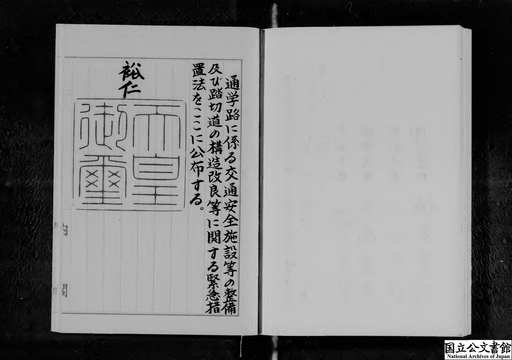 通学路に係る交通安全施設等の整備
及び踏切道の構造改良等に関する緊急措
置法をここに公布する。
裕仁
天皇
御璽
内閣
国立公文書館
National Archives of Japan